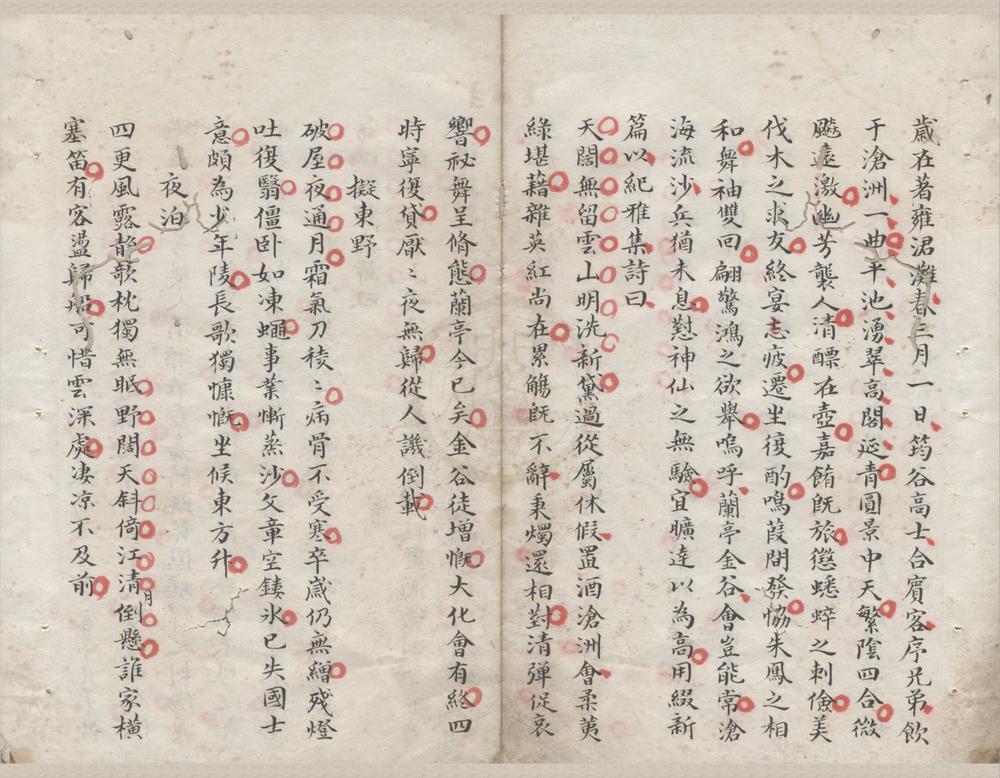 歲在著雍涒灘春三月一日筠谷高士合賓客序兄弟飲
于滄洲一曲平池湧翠高閣延青圓景中天繁陰四合微
飈遠激幽芳襲人清醥在壺嘉餚旣旅懲蟋蟀之刺儉美
伐木之求友終宴志疲遷坐復酌鳴葭間發恊朱鳳之相
和舞袖雙回翩驚鴻之欲舉嗚呼蘭亭金谷會豈能常滄
海流沙兵猶未息懟神仙之無驗宜曠達以為高用綴新
篇以紀雅集詩曰
天闊無留雲山明洗新黛過從屬休假置酒滄洲會柔荑
綠堪藉雜英紅尚在累觴旣不辭秉燭還相對清彈促哀
響祕舞呈脩態蘭亭今已矣金谷徒增慨大化會有終四
時寧復貸厭〻夜無歸從人譏倒載
擬東野
破屋夜通月霜氣刀稜〻病骨不受寒卒歲仍無繒殘燈
吐復翳僵卧如凍蠅事業慚蒸沙文章空鏤氷已失國士
意頗為少年陵長歌獨慷慨坐候東方升
夜泊
四更風露静歌枕獨無眠野闊天斜倚江清月倒懸誰家橫
塞笛有客盪歸船可惜雲深處淒凉不及前